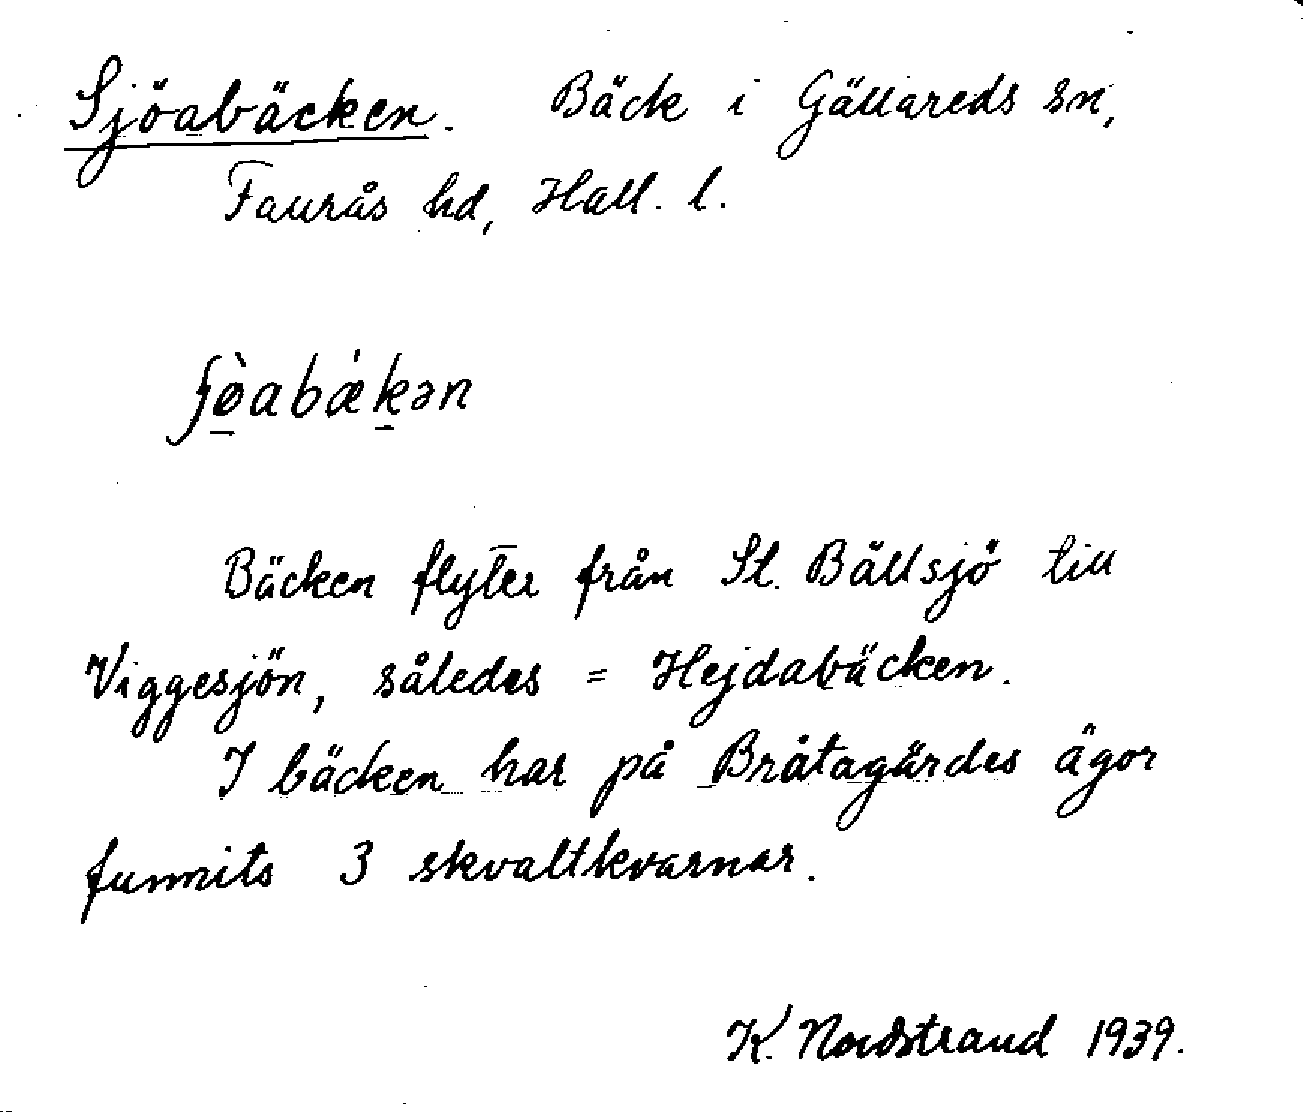 Sjöabäcken. Bäck i Gällareds sn,
Faurås hd, Hall. l.
ʃø̀abǽkən
Bäcken flyter från St. Bällsjö till
Viggesjön, således = Hejdabäcken.
I bäcken har på Bråtagärdes ägor
funnits 3 skvaltkvarnar.
K. Nordstrand 1939.